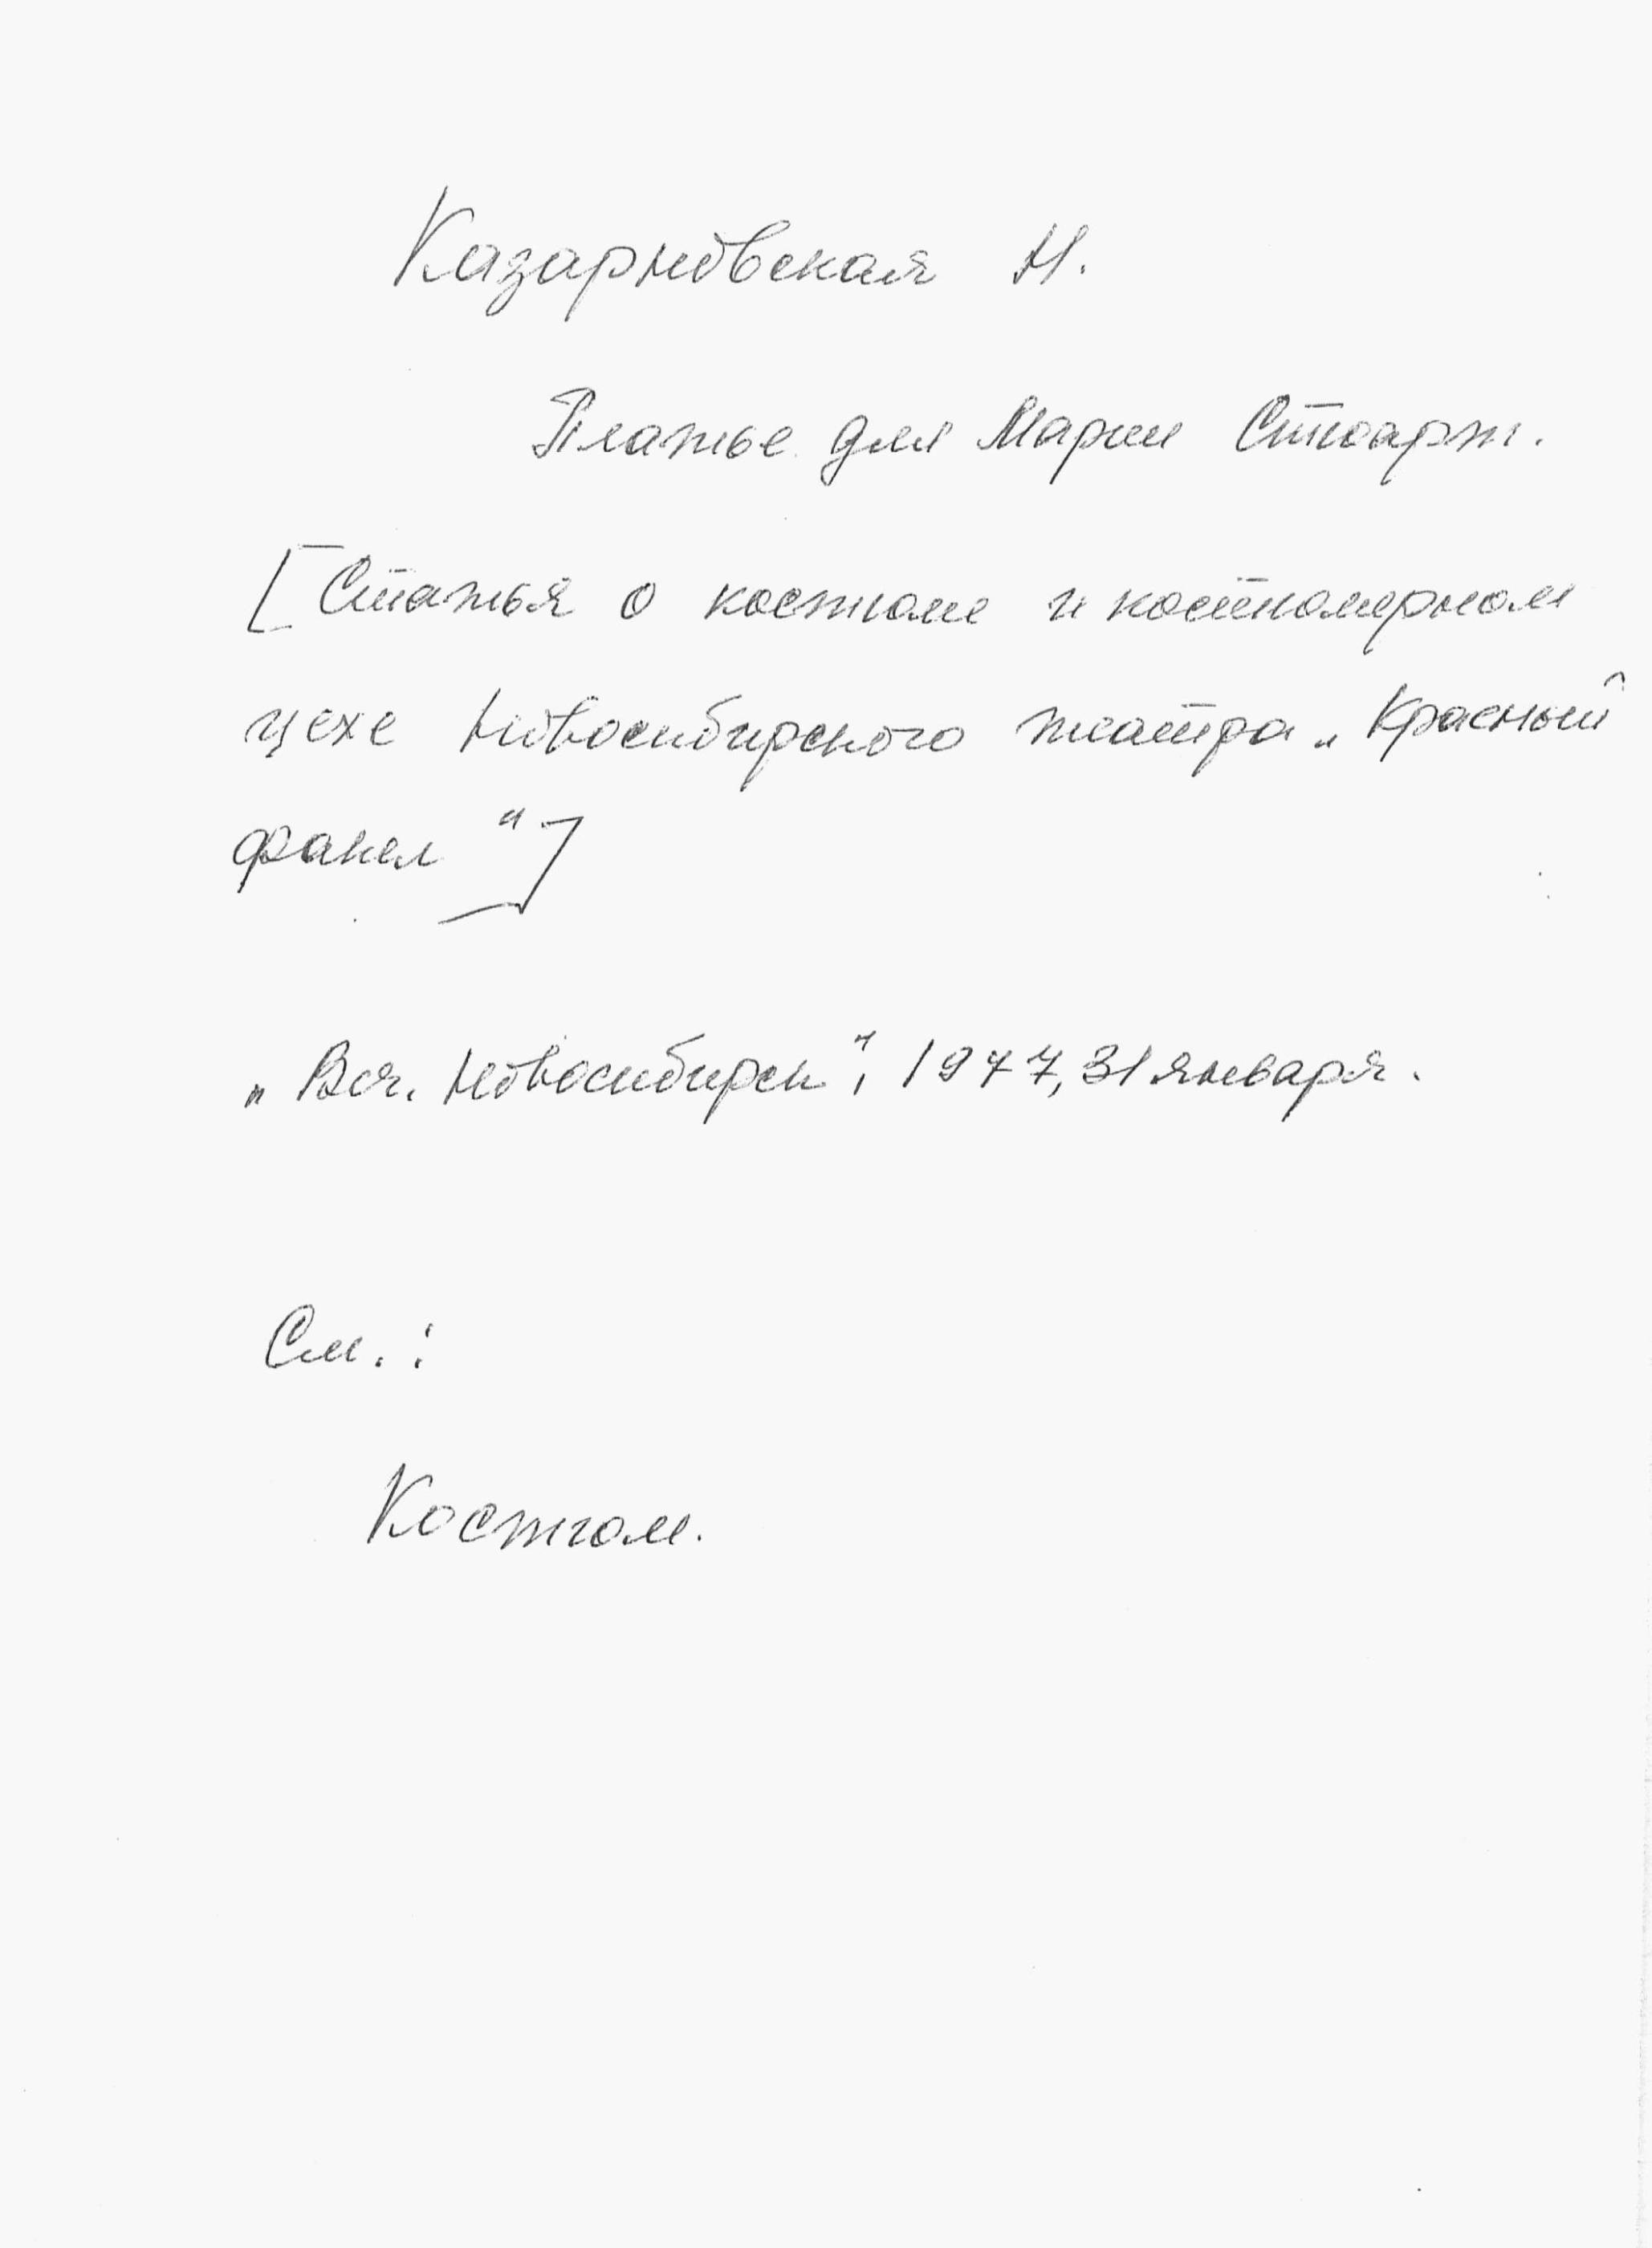 Казарновская Н.
Платье для Марии Стюарт.
[Статья о костюме и костюмерном
цехе Новосибирского театра „Красный
факел"]
„Веч. Новосибирск", 1977, 31 января.
См.:
Костюм.